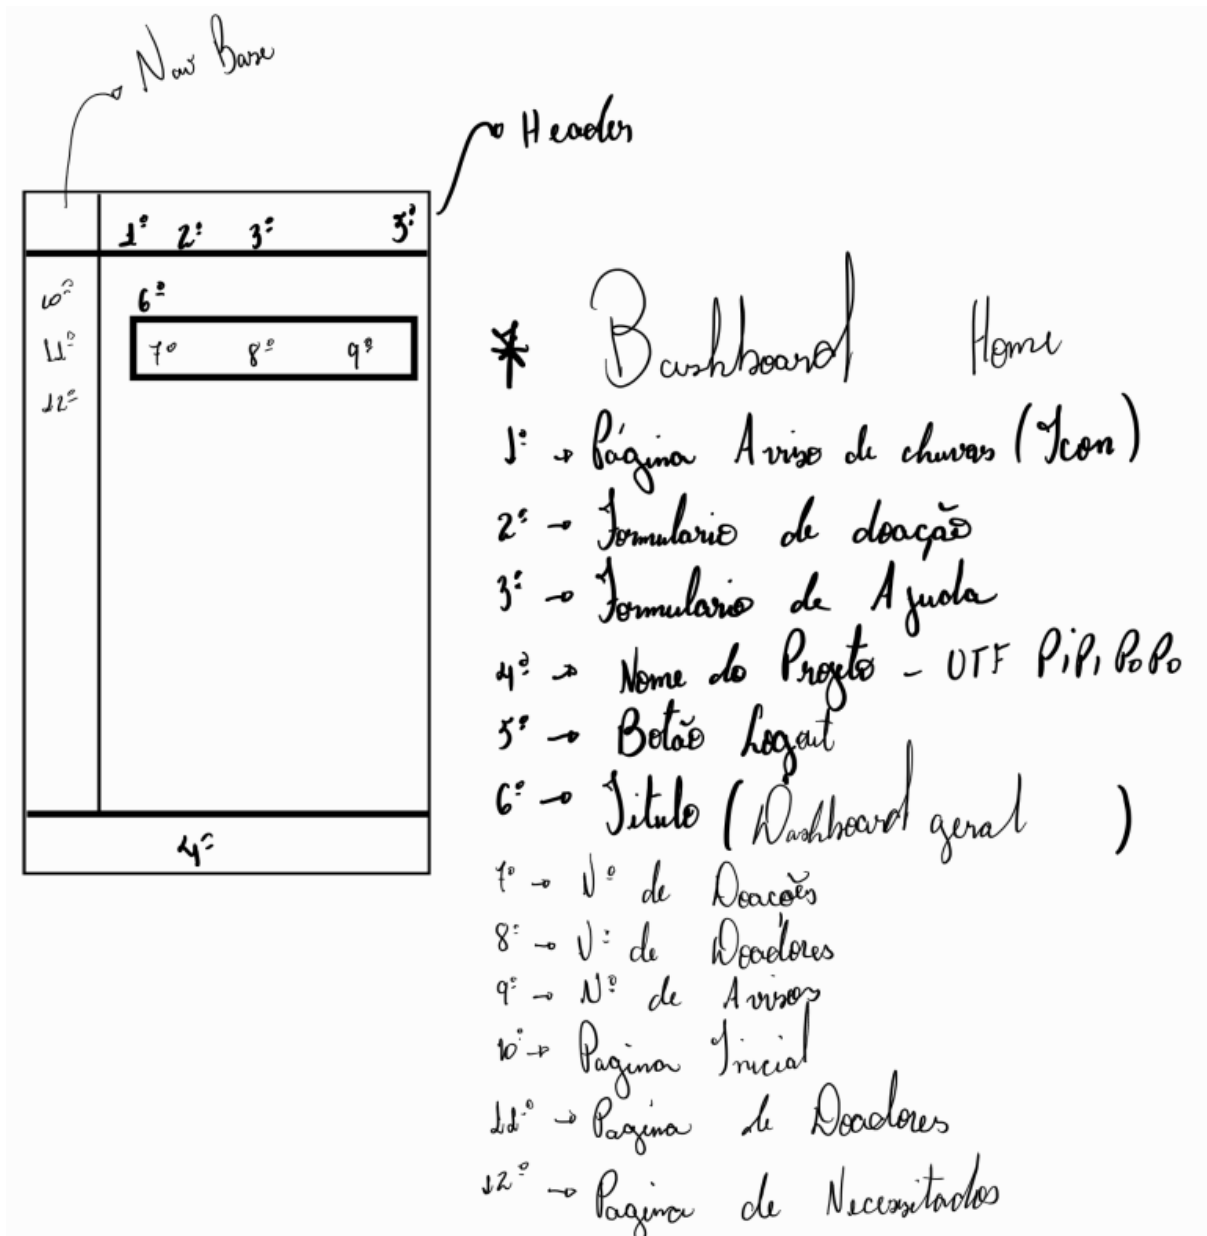 Nav Base
Header
1º 2º 3º 5º
10º 6º
11º 7º 8º 9º
12º
4º
* Dashboard Home
1º → Página Aviso de chuvas (Icon)
2º → Formulario de doação
3º → Formulario de Ajuda
4º → Nome do Projeto - UTF PiPi PoPo
5º → Botão Logout
6º → Titulo (Dashboard geral )
7º → Nº de Doações
8º → Nº de Doadores
9º → Nº de Avisos
10º → Pagina Inicial
11º → Pagina de Doadores
12º → Pagina de Necessitados